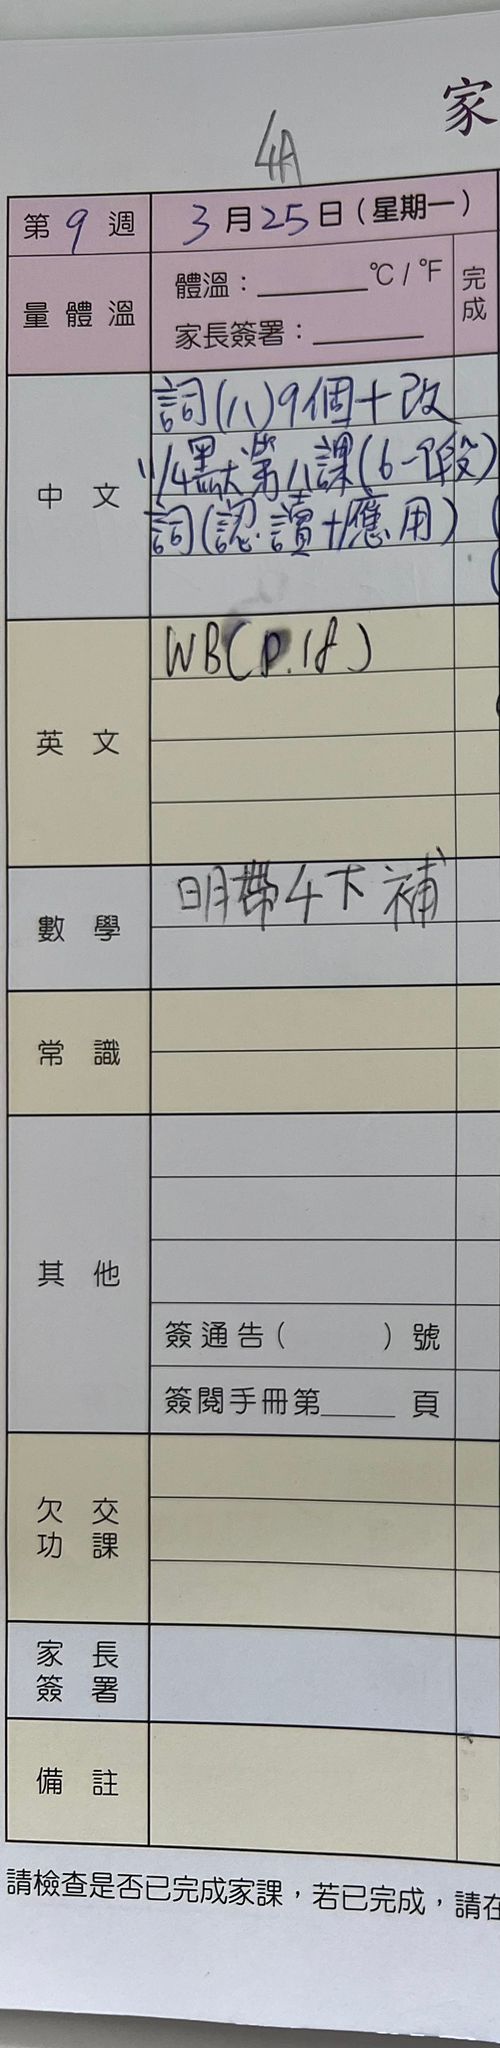 家
4A
第 9 週 3 月 25 日(星期一)
量體溫 體溫:______°C / °F 完成
家長簽署:______
中文 詞(八)9個+改
1/4默第八課(6-7段)
詞(認讀+應用)
英文 WB(p.18)
數學 明帶4下補
常識
其他
簽通告( )號
簽閱手冊第____頁
欠交功課
家長簽署
備註
請檢查是否已完成家課,若已完成,請在